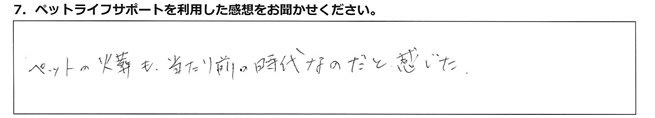 7．ペットライフサポートを利用した感想をお聞かせください。
ペットの火葬も、当たり前の時代なのだと感じた。